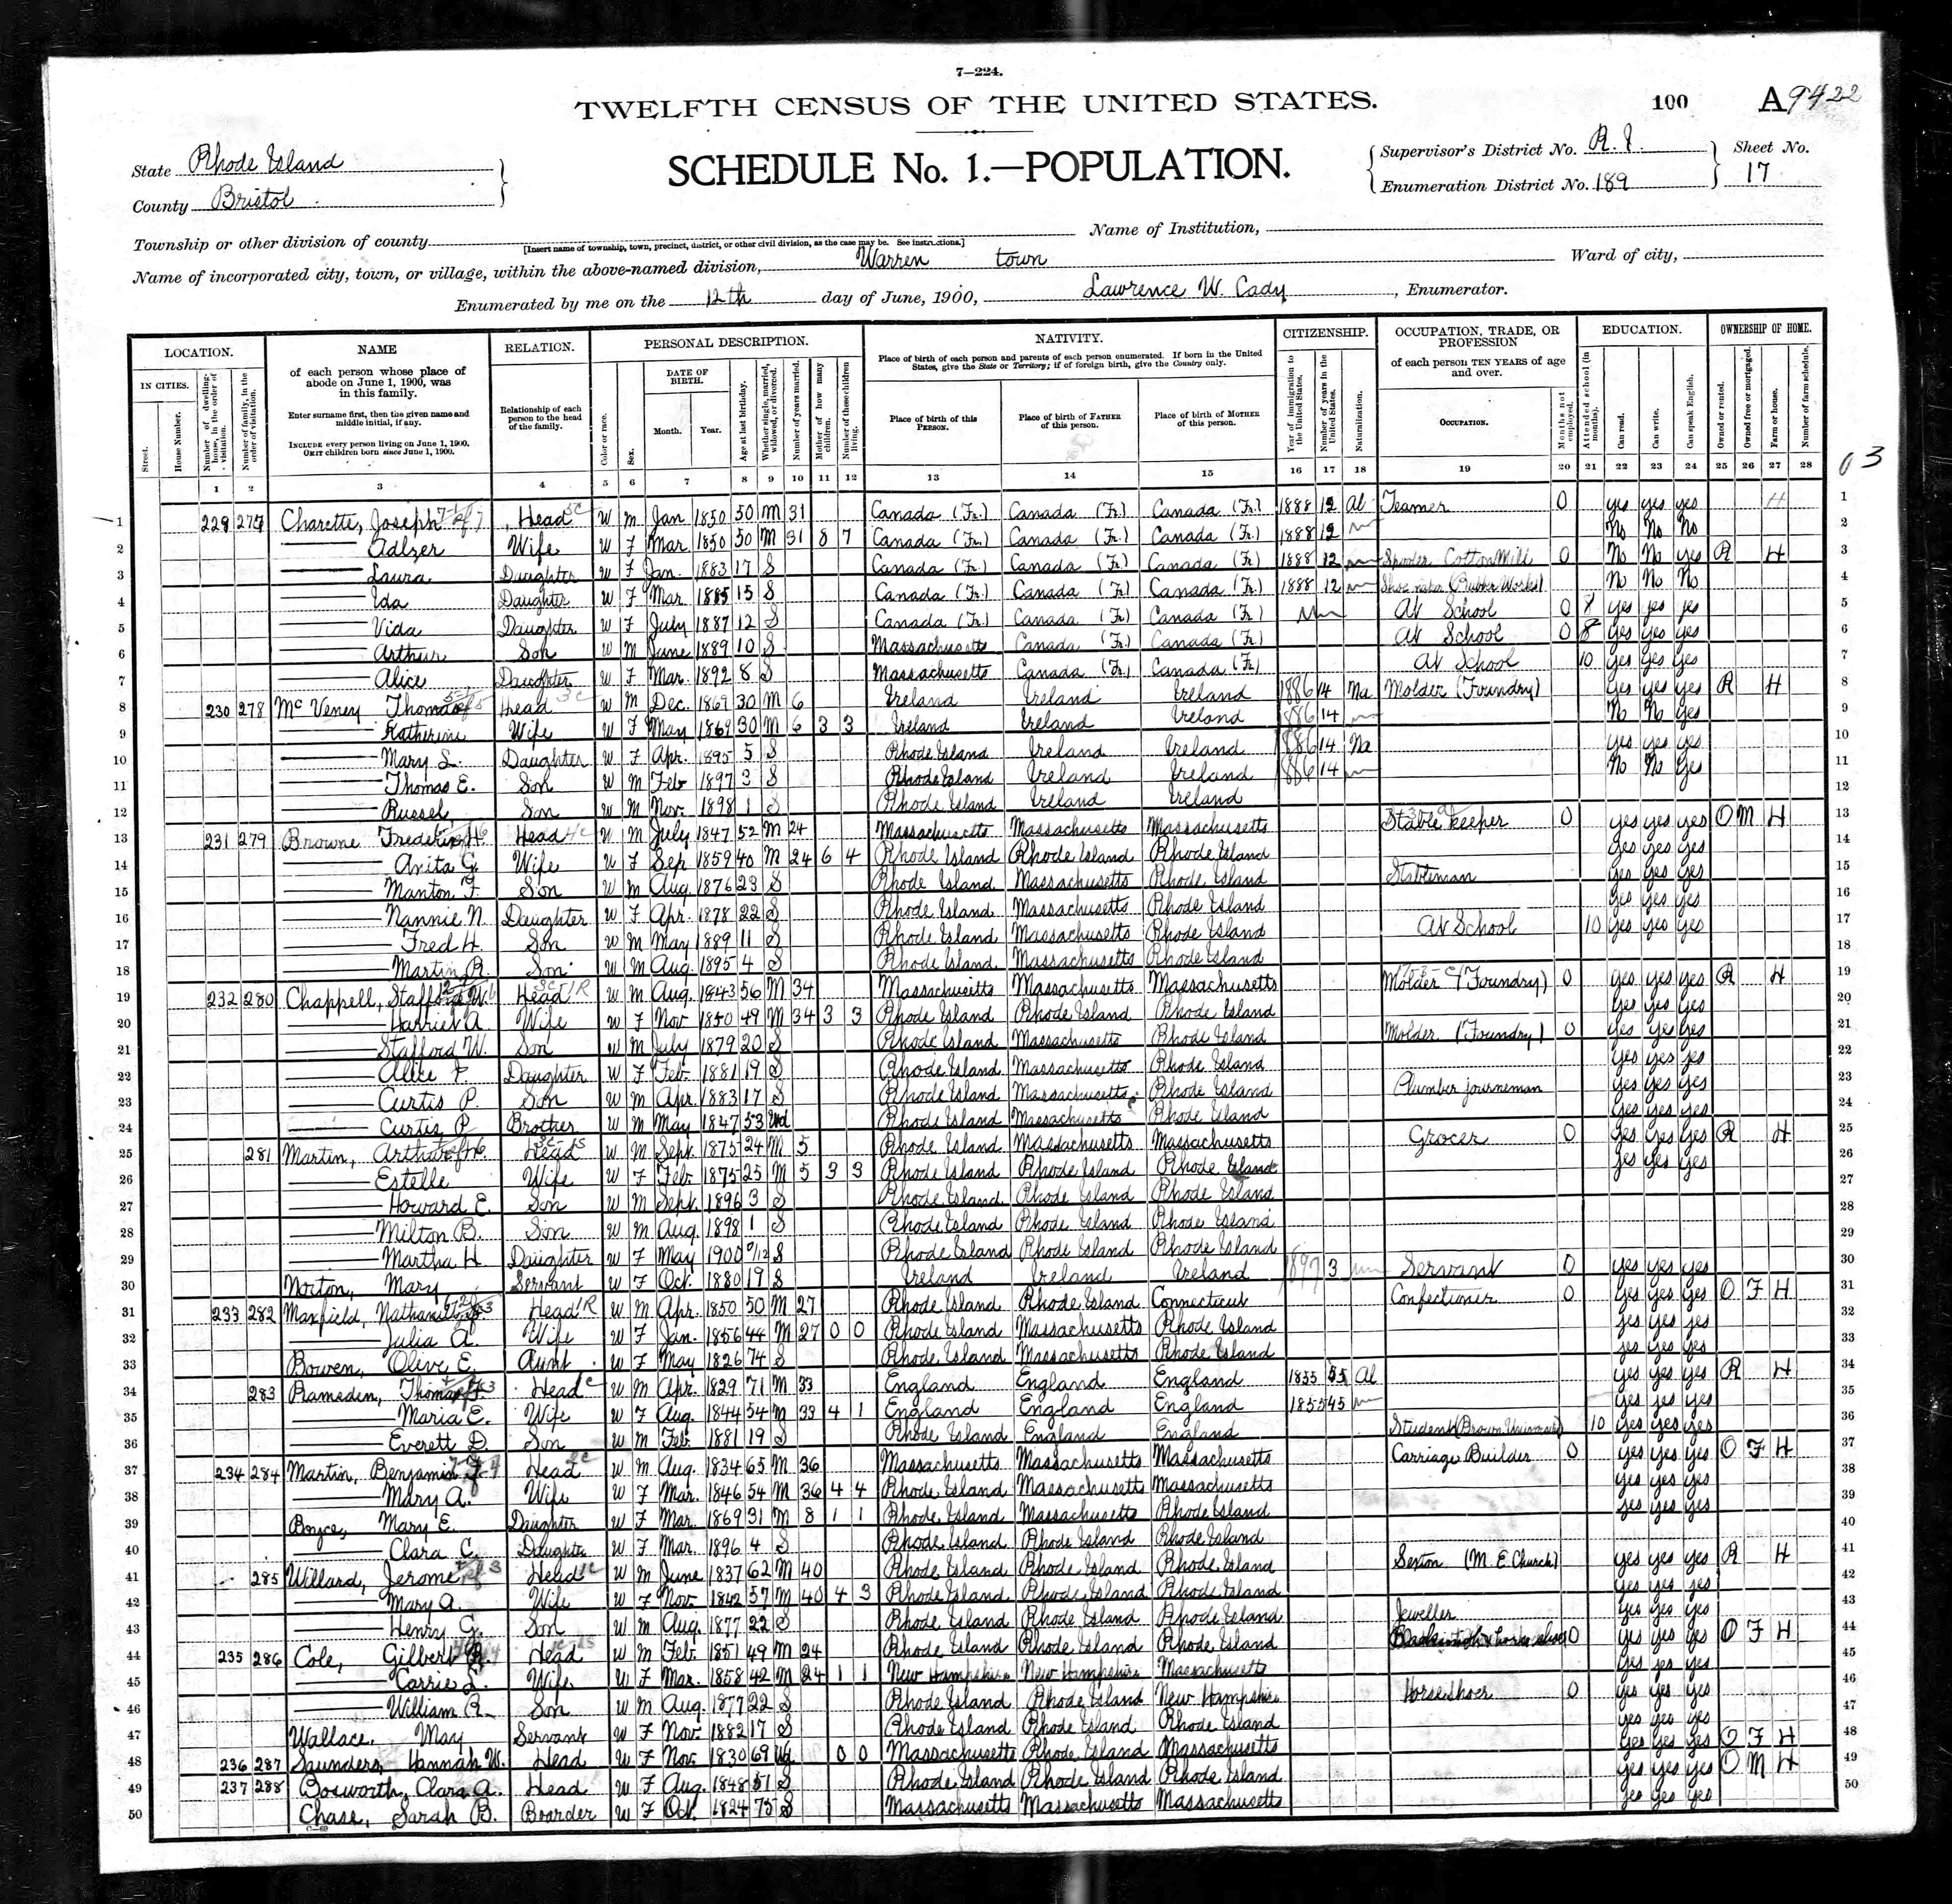 7—224.
TWELFTH CENSUS OF THE UNITED STATES.
100 A 9422
State Rhode Island
County Bristol
SCHEDULE No. 1.—POPULATION.
Supervisor's District No. R.I.
Enumeration District No. 189
Sheet No. 17
Township or other division of county
[Insert name of township, town, precinct, district, or other civil division, as the case may be. See instructions.]
Name of Institution,
Name of incorporated city, town, or village, within the above-named division, Warren town
Ward of city,
Enumerated by me on the 12th day of June, 1900, Lawrence W. Cady, Enumerator.
LOCATION. NAME RELATION. PERSONAL DESCRIPTION. NATIVITY. CITIZENSHIP. OCCUPATION, TRADE, OR PROFESSION EDUCATION. OWNERSHIP OF HOME.
IN CITIES.
Street.
House Number.
Number of dwelling-house, in the order of visitation.
Number of family, in the order of visitation.
of each person whose place of abode on June 1, 1900, was in this family.
Enter surname first, then the given name and middle initial, if any.
INCLUDE every person living on June 1, 1900.
OMIT children born since June 1, 1900.
Relationship of each person to the head of the family.
Color or race.
Sex.
DATE OF BIRTH.
Month. Year.
Age at last birthday.
Whether single, married, widowed, or divorced.
Number of years married.
Mother of how many children.
Number of these children living.
Place of birth of each person and parents of each person enumerated. If born in the United States, give the State or Territory; if of foreign birth, give the Country only.
Place of birth of this PERSON.
Place of birth of FATHER of this person.
Place of birth of MOTHER of this person.
Year of immigration to the United States.
Number of years in the United States.
Naturalization.
of each person TEN YEARS of age and over.
OCCUPATION.
Months not employed.
Attended school (in months).
Can read.
Can write.
Can speak English.
Owned or rented.
Owned free or mortgaged.
Farm or house.
Number of farm schedule.
1 2 3 4 5 6 7 8 9 10 11 12 13 14 15 16 17 18 19 20 21 22 23 24 25 26 27 28
03
1 229 277 Charette, Joseph Head W M Jan 1850 50 M 31 Canada (Fr.) Canada (Fr.) Canada (Fr.) 1888 12 Al Teamer 0 yes yes yes H
2 Adlzer Wife W F Mar 1850 50 M 31 8 7 Canada (Fr.) Canada (Fr.) Canada (Fr.) 1888 12 No No No
3 Laura Daughter W F Jan. 1883 17 S Canada (Fr.) Canada (Fr.) Canada (Fr) 1888 12 Spooler Cotton Mill 0 No No yes R H
4 Ida Daughter W F Mar 1885 15 S Canada (Fr.) Canada (Fr.) Canada (Fr.) 1888 12 Shoe maker (Rubber Works) No No No
5 Vida Daughter W F July 1887 12 S Canada (Fr.) Canada (Fr) Canada (Fr) At School 0 yes yes yes
6 Arthur Son W M June 1889 10 S Massachusetts Canada (Fr) Canada (Fr.) At School 0 8 yes yes yes
7 Alice Daughter W F Mar. 1892 8 S Massachusetts Canada (Fr.) Canada (Fr) At School 10 yes yes yes
8 230 278 McVeney Thomas Head W M Dec. 1869 30 M 6 Ireland Ireland Ireland 1886 14 Na Molder (Foundry) yes yes yes R H
9 Katherine Wife W F May 1869 30 M 6 3 3 Ireland Ireland Ireland 1886 14 No No yes
10 Mary L. Daughter W F Apr. 1895 5 S Rhode Island Ireland Ireland 1886 14 Na yes yes yes
11 Thomas E. Son W M Feb 1897 3 S Rhode Island Ireland Ireland 1886 14 No No yes
12 Russel Son W M Nov. 1898 1 S Rhode Island Ireland Ireland
13 231 279 Browne Frederick H. Head W M July 1847 52 M 24 Massachusetts Massachusetts Massachusetts Stable keeper 0 yes yes yes O M H
14 Anita G. Wife W F Sep 1859 40 M 24 6 4 Rhode Island Rhode Island Rhode Island yes yes yes
15 Manton F. Son W M Aug. 1876 23 S Rhode Island Massachusetts Rhode Island Stableman yes yes yes
16 Nannie N. Daughter W F Apr. 1878 22 S Rhode Island Massachusetts Rhode Island yes yes yes
17 Fred H. Son W M May 1889 11 S Rhode Island Massachusetts Rhode Island At School 10 yes yes yes
18 Martin R. Son W M Aug. 1895 4 S Rhode Island Massachusetts Rhode Island
19 232 280 Chappell, Stafford W. Head W M Aug. 1843 56 M 34 Massachusetts Massachusetts Massachusetts Molder (Foundry) 0 yes yes yes R H
20 Harriet A. Wife W F Nov 1850 49 M 34 3 3 Rhode Island Rhode Island Rhode Island yes yes yes
21 Stafford W. Son W M July 1879 20 S Rhode Island Massachusetts Rhode Island Molder (Foundry) 0 yes yes yes
22 Alice F Daughter W F Feb. 1881 19 S Rhode Island Massachusetts Rhode Island yes yes yes
23 Curtis P. Son W M Apr. 1883 17 S Rhode Island Massachusetts Rhode Island Plumber journeman yes yes yes
24 Curtis P Brother W M May 1847 53 Wd Rhode Island Massachusetts Rhode Island yes yes yes
25 281 Martin, Arthur H. Head W M Sept. 1875 24 M 5 Rhode Island Massachusetts Massachusetts Grocer 0 yes yes yes R H
26 Estelle Wife W F Feb. 1875 25 M 5 3 3 Rhode Island Rhode Island Rhode Island yes yes yes
27 Howard E. Son W M Sept. 1896 3 S Rhode Island Rhode Island Rhode Island
28 Milton B. Son W M Aug. 1898 1 S Rhode Island Rhode Island Rhode Island
29 Martha H Daughter W F May 1900 0/12 S Rhode Island Rhode Island Rhode Island
30 Norton, Mary Servant W F Oct. 1880 19 S Ireland Ireland Ireland 1897 3 Servant 0 yes yes yes
31 233 282 Maxfield, Nathaniel Head W M Apr. 1850 50 M 27 Rhode Island Rhode Island Connecticut Confectioner 0 yes yes yes O F H
32 Julia A. Wife W F Jan. 1856 44 M 27 0 0 Rhode Island Massachusetts Rhode Island yes yes yes
33 Bowen, Olive E. Aunt W F May 1826 74 S Rhode Island Massachusetts Rhode Island yes yes yes
34 283 Rameden, Thomas Head W M Apr. 1829 71 M 33 England England England 1855 45 Al yes yes yes R H
35 Maria E. Wife W F Aug. 1844 54 M 33 4 1 England England England 1855 45 yes yes yes
36 Everett D. Son W M Feb. 1881 19 S Rhode Island England England Student (Brown University) 10 yes yes yes
37 234 284 Martin, Benjamin Head W M Aug. 1834 65 M 36 Massachusetts Massachusetts Massachusetts Carriage Builder 0 yes yes yes O F H
38 Mary A. Wife W F Mar. 1846 54 M 36 4 4 Rhode Island Massachusetts Massachusetts yes yes yes
39 Boyce, Mary E. Daughter W F Mar. 1869 31 M 8 1 1 Rhode Island Massachusetts Rhode Island yes yes yes
40 Clara C. Daughter W F Mar. 1896 4 S Rhode Island Rhode Island Rhode Island
41 285 Willard, Jerome Head W M June 1837 62 M 40 Rhode Island Rhode Island Rhode Island Sexton (M. E Church) yes yes yes R H
42 Mary A. Wife W F Nov. 1842 57 M 40 4 3 Rhode Island Rhode Island Rhode Island yes yes yes
43 Henry G. Son W M Aug. 1877 22 S Rhode Island Rhode Island Rhode Island Jeweller yes yes yes
44 235 286 Cole, Gilbert Head W M Feb. 1851 49 M 24 Rhode Island Rhode Island Rhode Island 0 yes yes yes O F H
45 Carrie L. Wife W F Mar. 1858 42 M 24 1 1 New Hampshire New Hampshire Massachusetts yes yes yes
46 William R. Son W M Aug. 1877 22 S Rhode Island Rhode Island New Hampshire Horseshoer 0 yes yes yes
47 Wallace, May Servant W F Nov. 1882 17 S Rhode Island Rhode Island Rhode Island yes yes yes
48 236 287 Saunders, Hannah W. Head W F Nov. 1830 69 Wd 0 0 Massachusetts Rhode Island Massachusetts yes yes yes O F H
49 237 288 Bosworth, Clara A. Head W F Aug. 1848 51 S Rhode Island Rhode Island Rhode Island yes yes yes O M H
50 Chase, Sarah B. Boarder W F Oct. 1824 75 S Massachusetts Massachusetts Massachusetts yes yes yes